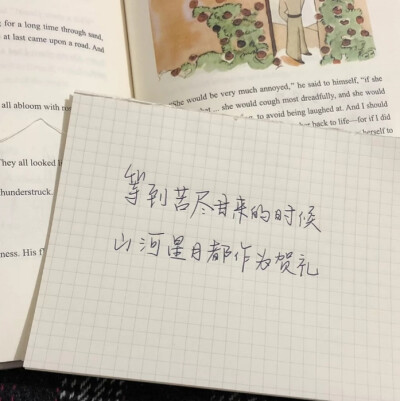 g for a long time through sand,
at last came upon a road. And
all abloom with
They all looked
thunderstruck.
ness. His
"She would be very much annoyed," he said to himself, "if she
she would cough most dreadfully, and she would
to avoid being laughed at. And I should
back to life—for if I did
herself to
等到苦尽甘来的时候
山河星月都作为贺礼